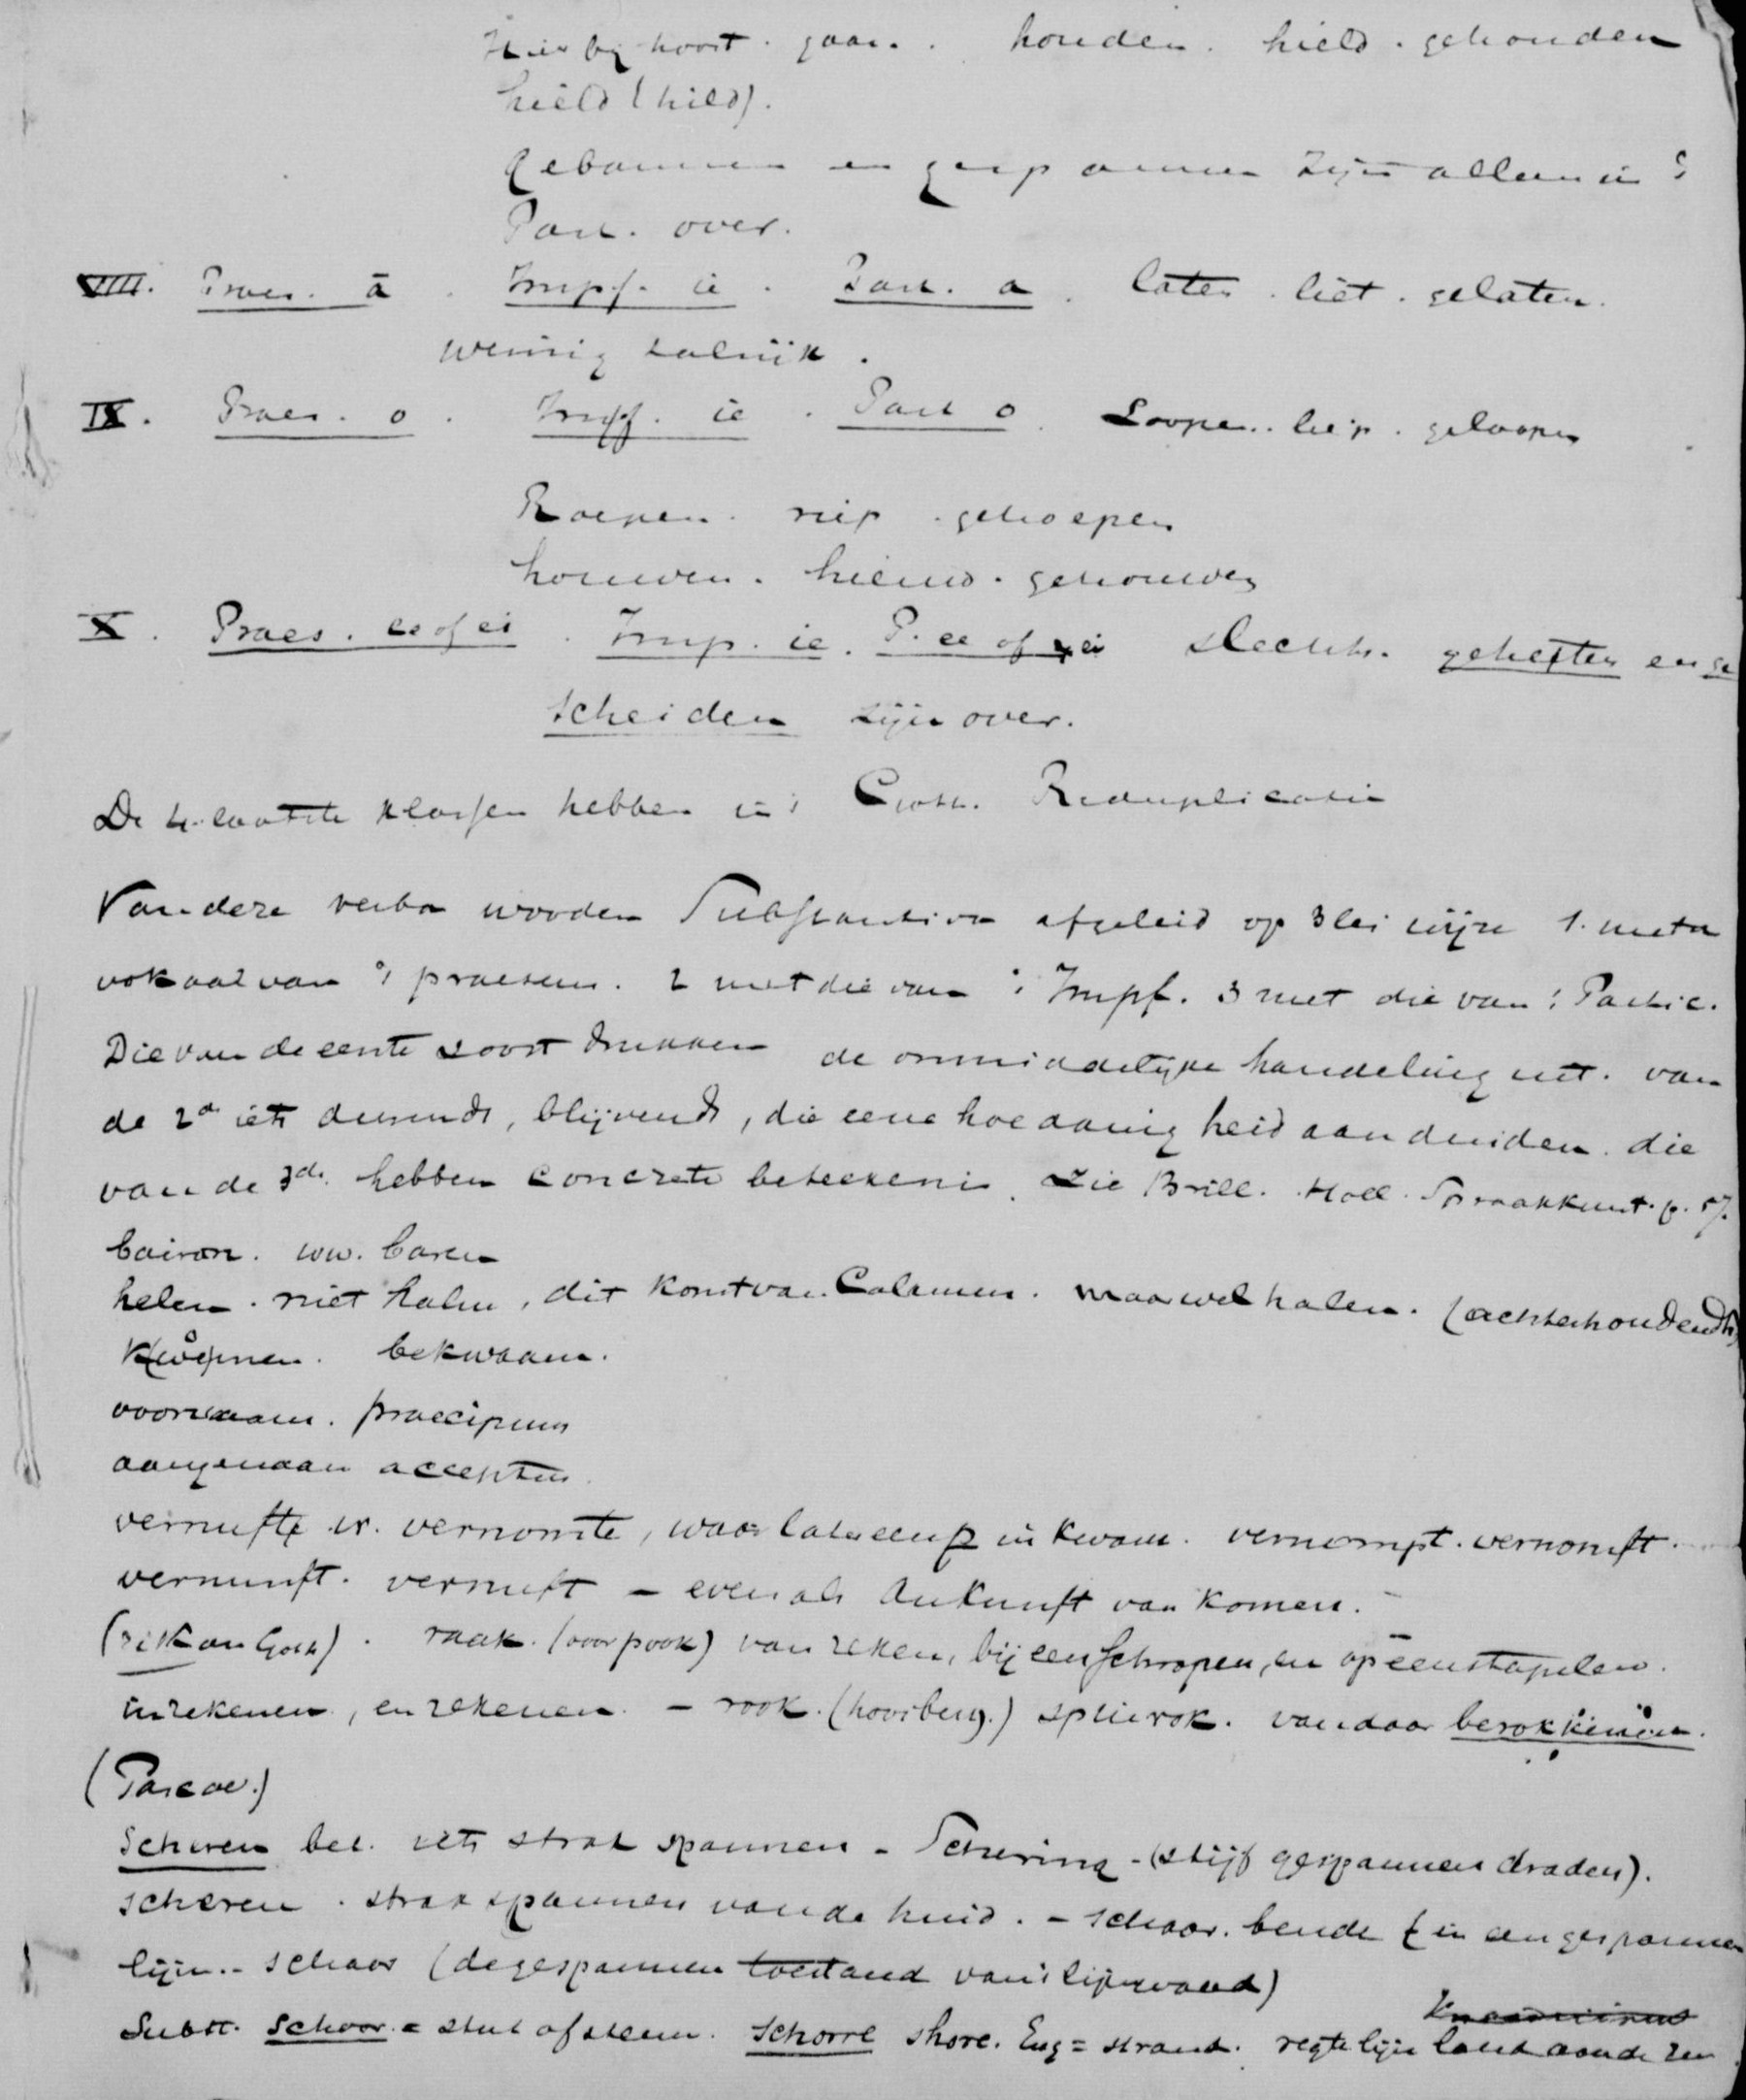 Hierbij hoort. gaan. houden. hield. gehouden
hield (hild).
Gebannen en gespannen zijn alleen in 't
Part. over.
VIII. Praes. ā. Impf. ie. Part. a. laten. liet. gelaten.
weinig talrijk.
IX. Praes. o. Impf. ie. Part o. Loopen. liep. geloopen
Roepen. riep. geroepen
houwen. hieuw. gehouwen
X. Praes. ee of ei. Imp. ie. P. ee of ei slechts. geheeten en ge
scheiden zijn over.
De 4 laatste klassen hebben in 't Goth. Reduplicatie
Van deze verba worden Substantiva afgeleid op 3lei wijze 1. met a
vokaal van 't praesens. 2 met die van 't Impf. 3 met die van 't Partic.
Die van de eerste soort drukken de onmiddelijke handeling uit. van
de 2de iets durends, blijvends, die eene hoedanigheid aanduiden. die
van de 3de hebben concrete beteekenis. Zie Brill. Holl. Spraakkunst. p. 57.
bairan. ww. baren
helen. niet halen, dit komt van Calamen. maar wel halen. (achterhoudends)
bekwaam.
voornaam. praecipuus
aangenaam acceptus.
vernufte w. vernomte, waar later een p in kwam. vernompt. vernomft.
vernunft. vernuft – even als Ankunft van komen.
(rikan Goth). raak. (voor pook) van reken, bij een schrapen, en opeenstapelen.
inrekenen, en rekenen. – rook. (hooiberg.) spinrok. vandaar berokkenen.
(Pascae.)
Scheren bet. iets strak spannen – Schering – (stijf gespannen draden).
scheren. strak spannen van de huid. – schaar. bende (in een gespannen
lijn. – schaar (de gespannen toestand van 't lijnwaad)
Subst. Schoor = stut of steun. Schorre shore. Eng = strand. regte lijn land aan de zee